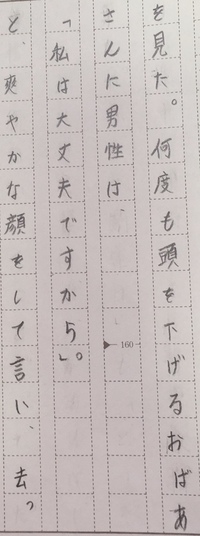 を見た。何度も頭を下げるおばあ
さんに男性は、
「私は大丈夫ですから」。
と、爽やかな顔をして言い、去っ
160